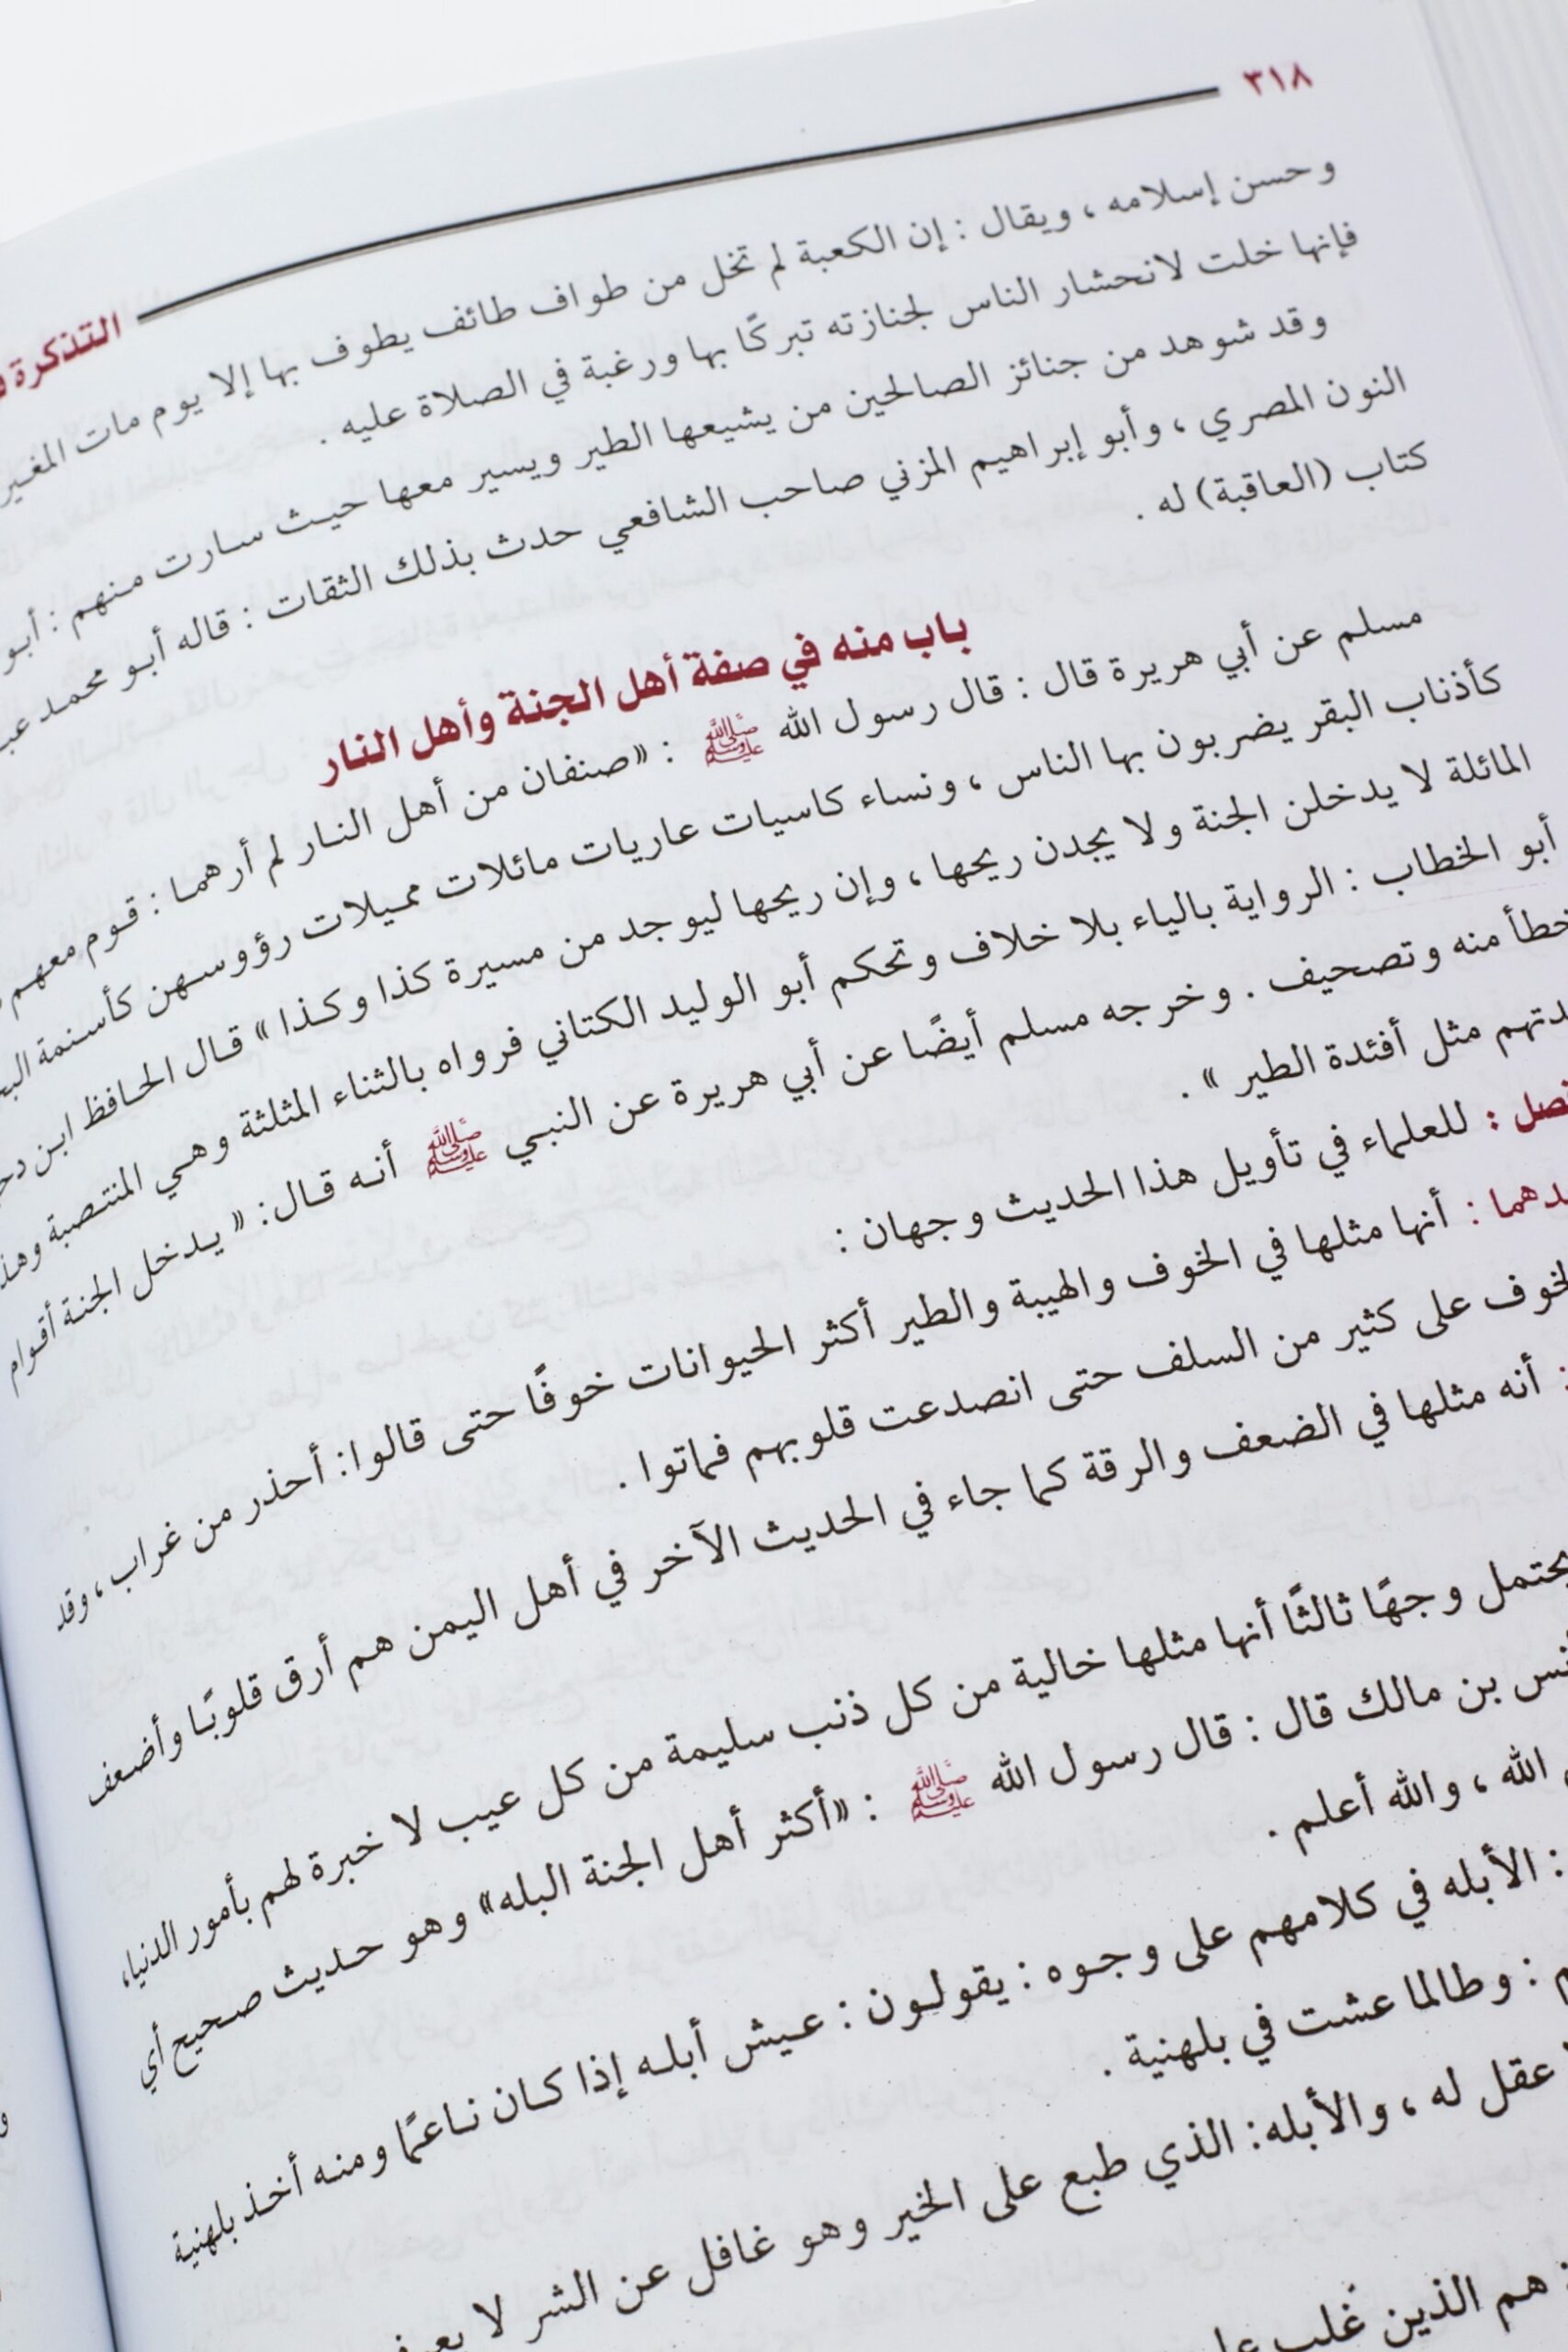 ٣١٨
التذكرة
وحسن إسلامه ، ويقال : إن الكعبة لم تخل من طواف طائف يطوف بها إلا يوم مات
فإنها خلت لانحشار الناس لجنازته تبركًا بها ورغبة في الصلاة عليه .
وقد شوهد من جنائز الصالحين من يشيعها الطير ويسير معها حيث سارت منهم : أبو
النون المصري ، وأبو إبراهيم المزني صاحب الشافعي حدث بذلك الثقات : قاله أبو محمد
كتاب (العاقبة) له .
باب منه في صفة أهل الجنة وأهل النار
مسلم عن أبي هريرة قال : قال رسول الله ﷺ : «صنفان من أهل النار لم أرهما : قوم معهم
كأذناب البقر يضربون بها الناس ، ونساء كاسيات عاريات مائلات مميلات رؤوسهن كأسنمة
المائلة لا يدخلن الجنة ولا يجدن ريحها ، وإن ريحها ليوجد من مسيرة كذا وكذا» قال الحافظ ابن
أبو الخطاب : الرواية بالياء بلا خلاف وتحكم أبو الوليد الكتاني فرواه بالثناء المثلثة وهي المنتصبة
خطأ منه وتصحيف . وخرجه مسلم أيضًا عن أبي هريرة عن النبي ﷺ أنه قال: « يدخل الجنة أقوام
مثل أفئدة الطير » .
للعلماء في تأويل هذا الحديث وجهان :
أنها مثلها في الخوف والهيبة والطير أكثر الحيوانات خوفًا حتى قالوا: أحذر من غراب ، وقد
على كثير من السلف حتى انصدعت قلوبهم فماتوا .
: أنه مثلها في الضعف والرقة كما جاء في الحديث الآخر في أهل اليمن هم أرق قلوبًا وأضعف
وجهًا ثالثًا أنها مثلها خالية من كل ذنب سليمة من كل عيب لا خبرة لهم بأمور الدنيا،
بن مالك قال : قال رسول الله ﷺ : «أكثر أهل الجنة البله» وهو حديث صحيح أي
الله ، والله أعلم .
: الأبله في كلامهم على وجوه : يقولون : عيش أبله إذا كان ناعمًا ومنه أخذ بلهنية
: وطالما عشت في بلهنية .
عقل له ، والأبله: الذي طبع على الخير وهو غافل عن الشر لا
هم الذين غلب